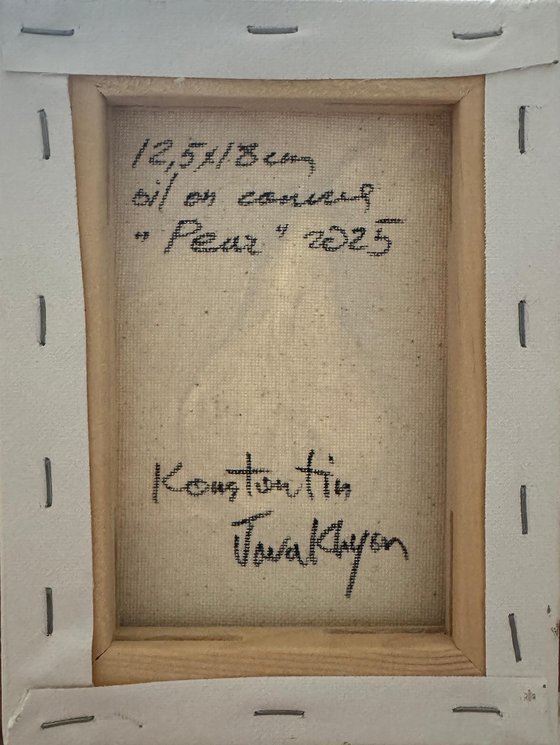 12,5x18cm
oil on canvas
"Pear" 2025
Konstantin
Javakhyan